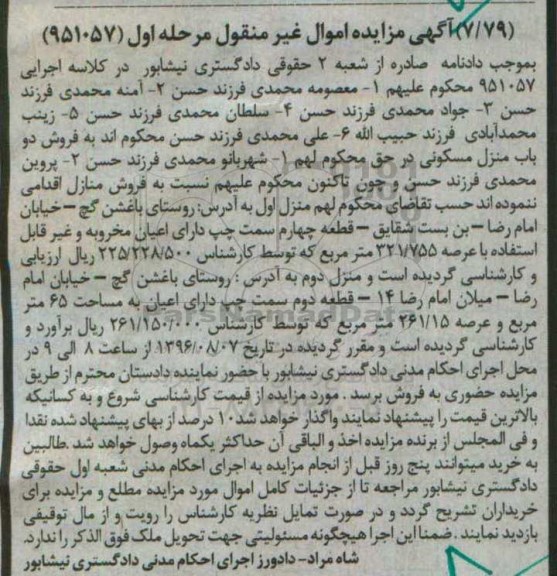 (۷/۷۹) آگهی مزایده اموال غیر منقول مرحله اول (۹۵۱۰۵۷)
بموجب دادنامه صادره از شعبه ۲ حقوقی دادگستری نیشابور در کلاسه اجرایی
۹۵۱۰۵۷ محکوم علیهم ۱- معصومه محمدی فرزند حسن ۲- آمنه محمدی فرزند
حسن ۳- جواد محمدی فرزند حسن ۴- سلطان محمدی فرزند حسن ۵- زینب
محمدآبادی فرزند حبیب الله ۶- علی محمدی فرزند حسن محکوم اند به فروش دو
باب منزل مسکونی در حق محکوم لهم ۱- شهربانو محمدی فرزند حسن ۲- پروین
محمدی فرزند حسن و چون تاکنون محکوم علیهم نسبت به فروش منازل اقدامی
ننموده اند حسب تقاضای محکوم لهم منزل اول به آدرس: روستای باغشن گچ – خیابان
امام رضا – بن بست شقایق – قطعه چهارم سمت چپ دارای اعیان مخروبه و غیر قابل
استفاده با عرصه ۳۲۱/۷۵۵ متر مربع که توسط کارشناس ۲۲۵/۲۲۸/۵۰۰ ریال ارزیابی
و کارشناسی گردیده است و منزل دوم به آدرس : روستای باغشن گچ – خیابان امام
رضا – میلان امام رضا ۱۴ – قطعه دوم سمت چپ دارای اعیان به مساحت ۶۵ متر
مربع و عرصه ۲۶۱/۱۵ متر مربع که توسط کارشناس ۲۶۱/۱۵۰/۰۰۰ ریال برآورد و
کارشناسی گردیده است و مقرر گردیده در تاریخ ۱۳۹۶/۰۸/۰۷ از ساعت ۸ الی ۹ در
محل اجرای احکام مدنی دادگستری نیشابور با حضور نماینده دادستان محترم از طریق
مزایده حضوری به فروش برسد . مورد مزایده از قیمت کارشناسی شروع و به کسانیکه
بالاترین قیمت را پیشنهاد نمایند واگذار خواهد شد ۱۰ درصد از بهای پیشنهاد شده نقدا
و فی المجلس از برنده مزایده اخذ و الباقی آن حداکثر یکماه وصول خواهد شد .طالبین
به خرید میتوانند پنج روز قبل از انجام مزایده به اجرای احکام مدنی شعبه اول حقوقی
دادگستری نیشابور مراجعه تا از جزئیات کامل اموال مورد مزایده مطلع و مزایده برای
خریداران تشریح گردد و در صورت تمایل نظریه کارشناس را رویت و از مال توقیفی
بازدید نمایند . ضمنا این اجرا هیچگونه مسئولیتی جهت تحویل ملک فوق الذکر را ندارد.
شاه مراد- دادورز اجرای احکام مدنی دادگستری نیشابور